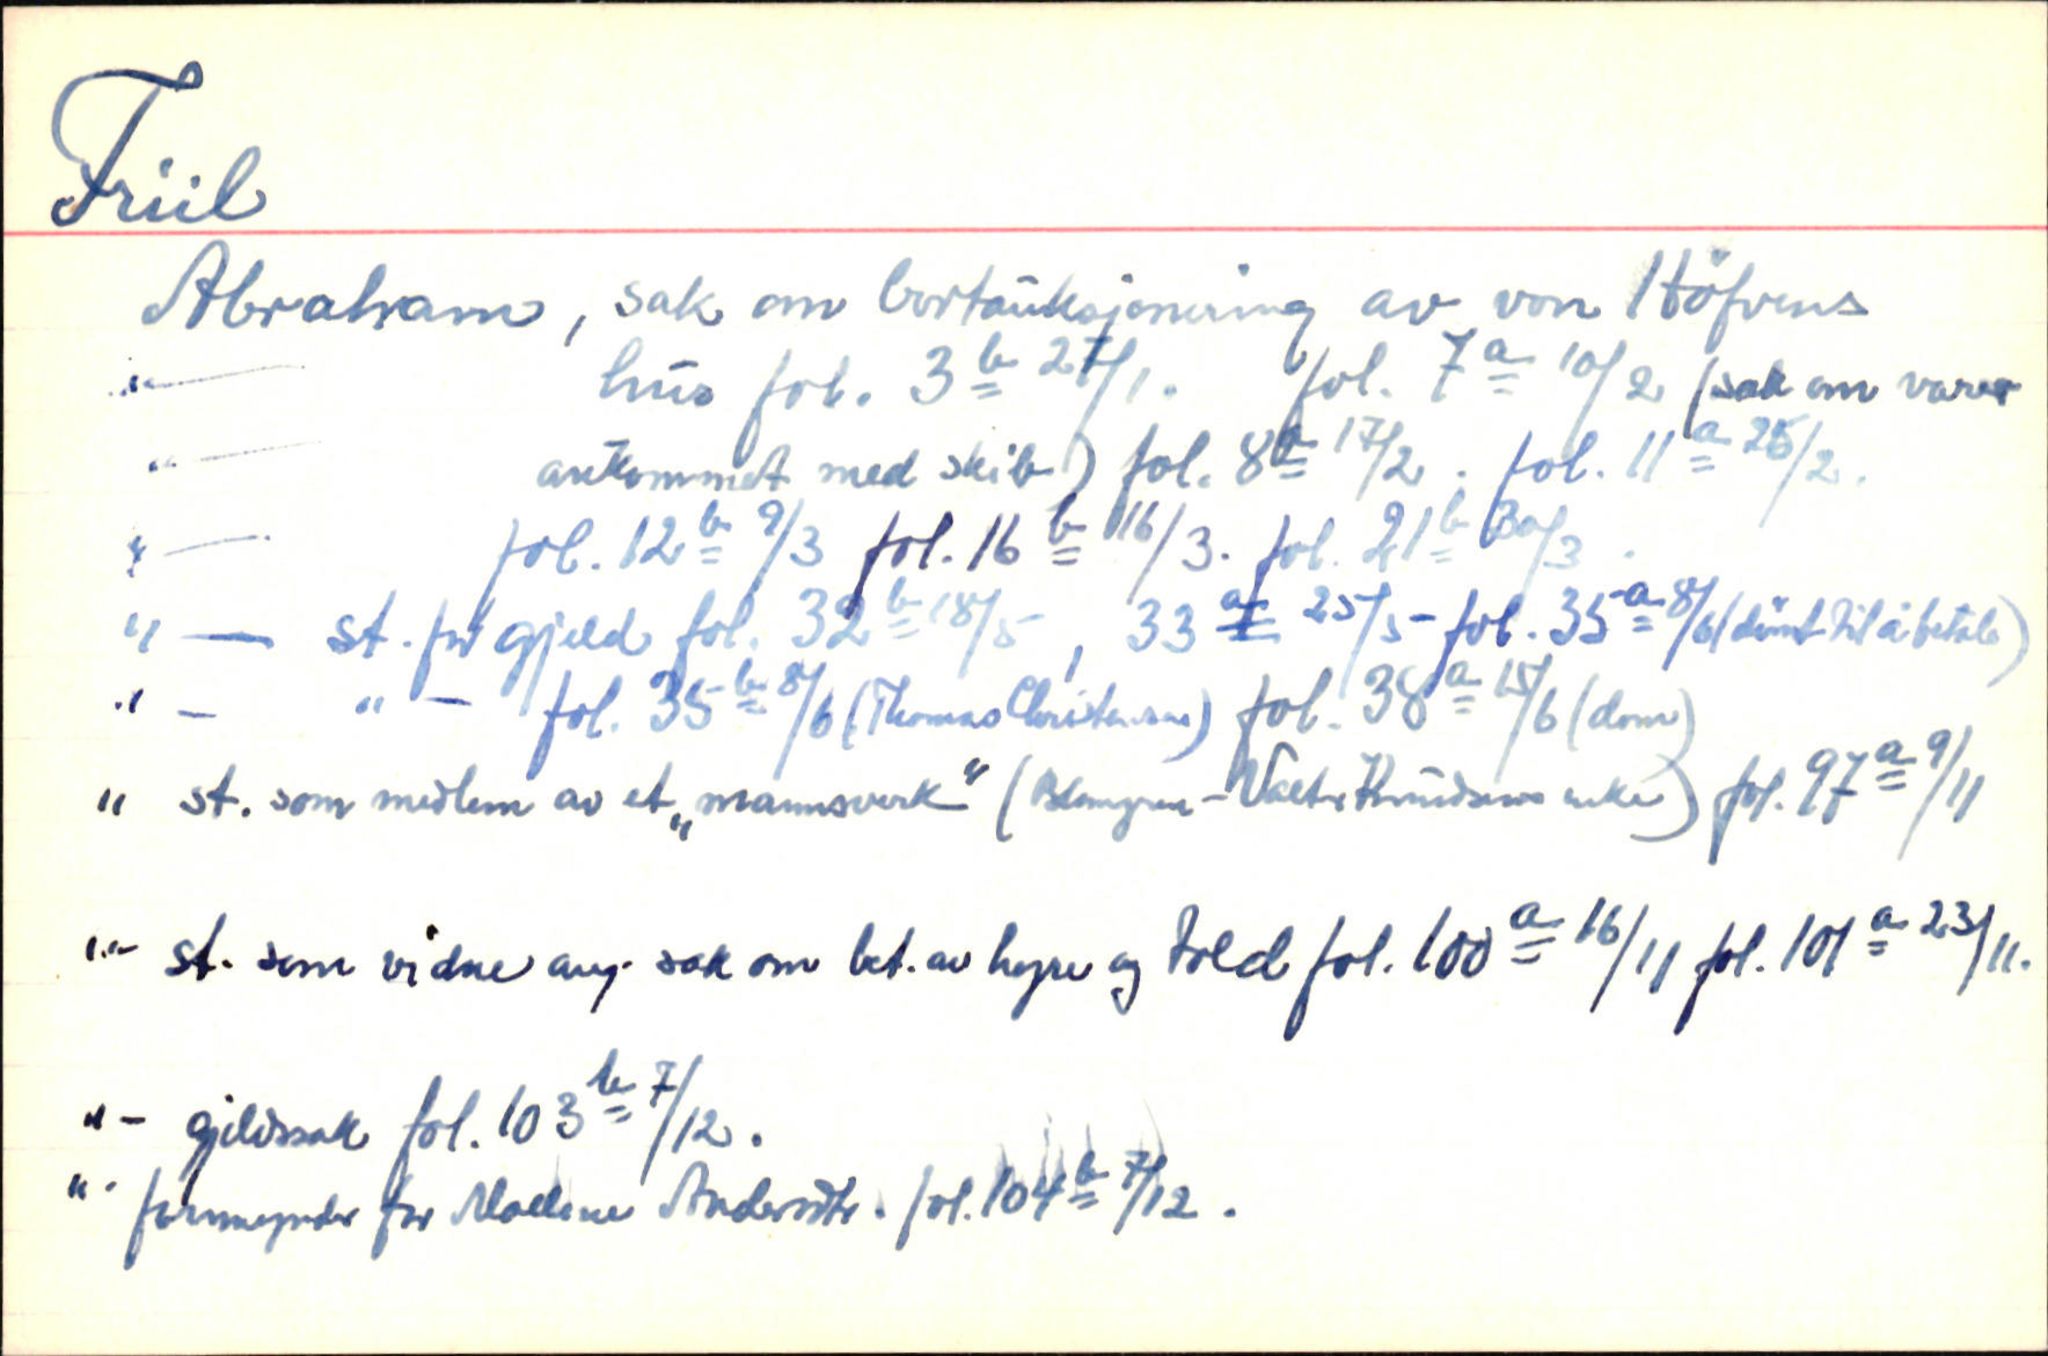 Friil
Abraham, sak om bortauksjonering av von Höfvens
"— hus fol. 3b 27/1. fol. 7a 10/2 (sak om varer
"— ankommet med skib) fol. 8a 17/2. fol. 11a 25/2.
"— fol. 12b 9/3 fol. 16b 16/3. fol. 21b 30/3.
"— st. for gjeld fol. 32b 18/5, 33a 25/5 - fol. 35a 8/6 (dömt til å betale)
"— "— fol. 35b 8/6 (Thomas Christensens) fol. 38a 15/6 (dom)
" st. som medlem av et „mannsverk" ( Knudsens enke) fol. 97a 9/11
"- st. som vidne ang. sak om bet. av hyre og told fol. 100a 16/11 fol. 101a 23/11.
"- gjeldssak fol. 103b 7/12.
"- formynder for Madlene Andersdtr. fol. 104b 7/12.